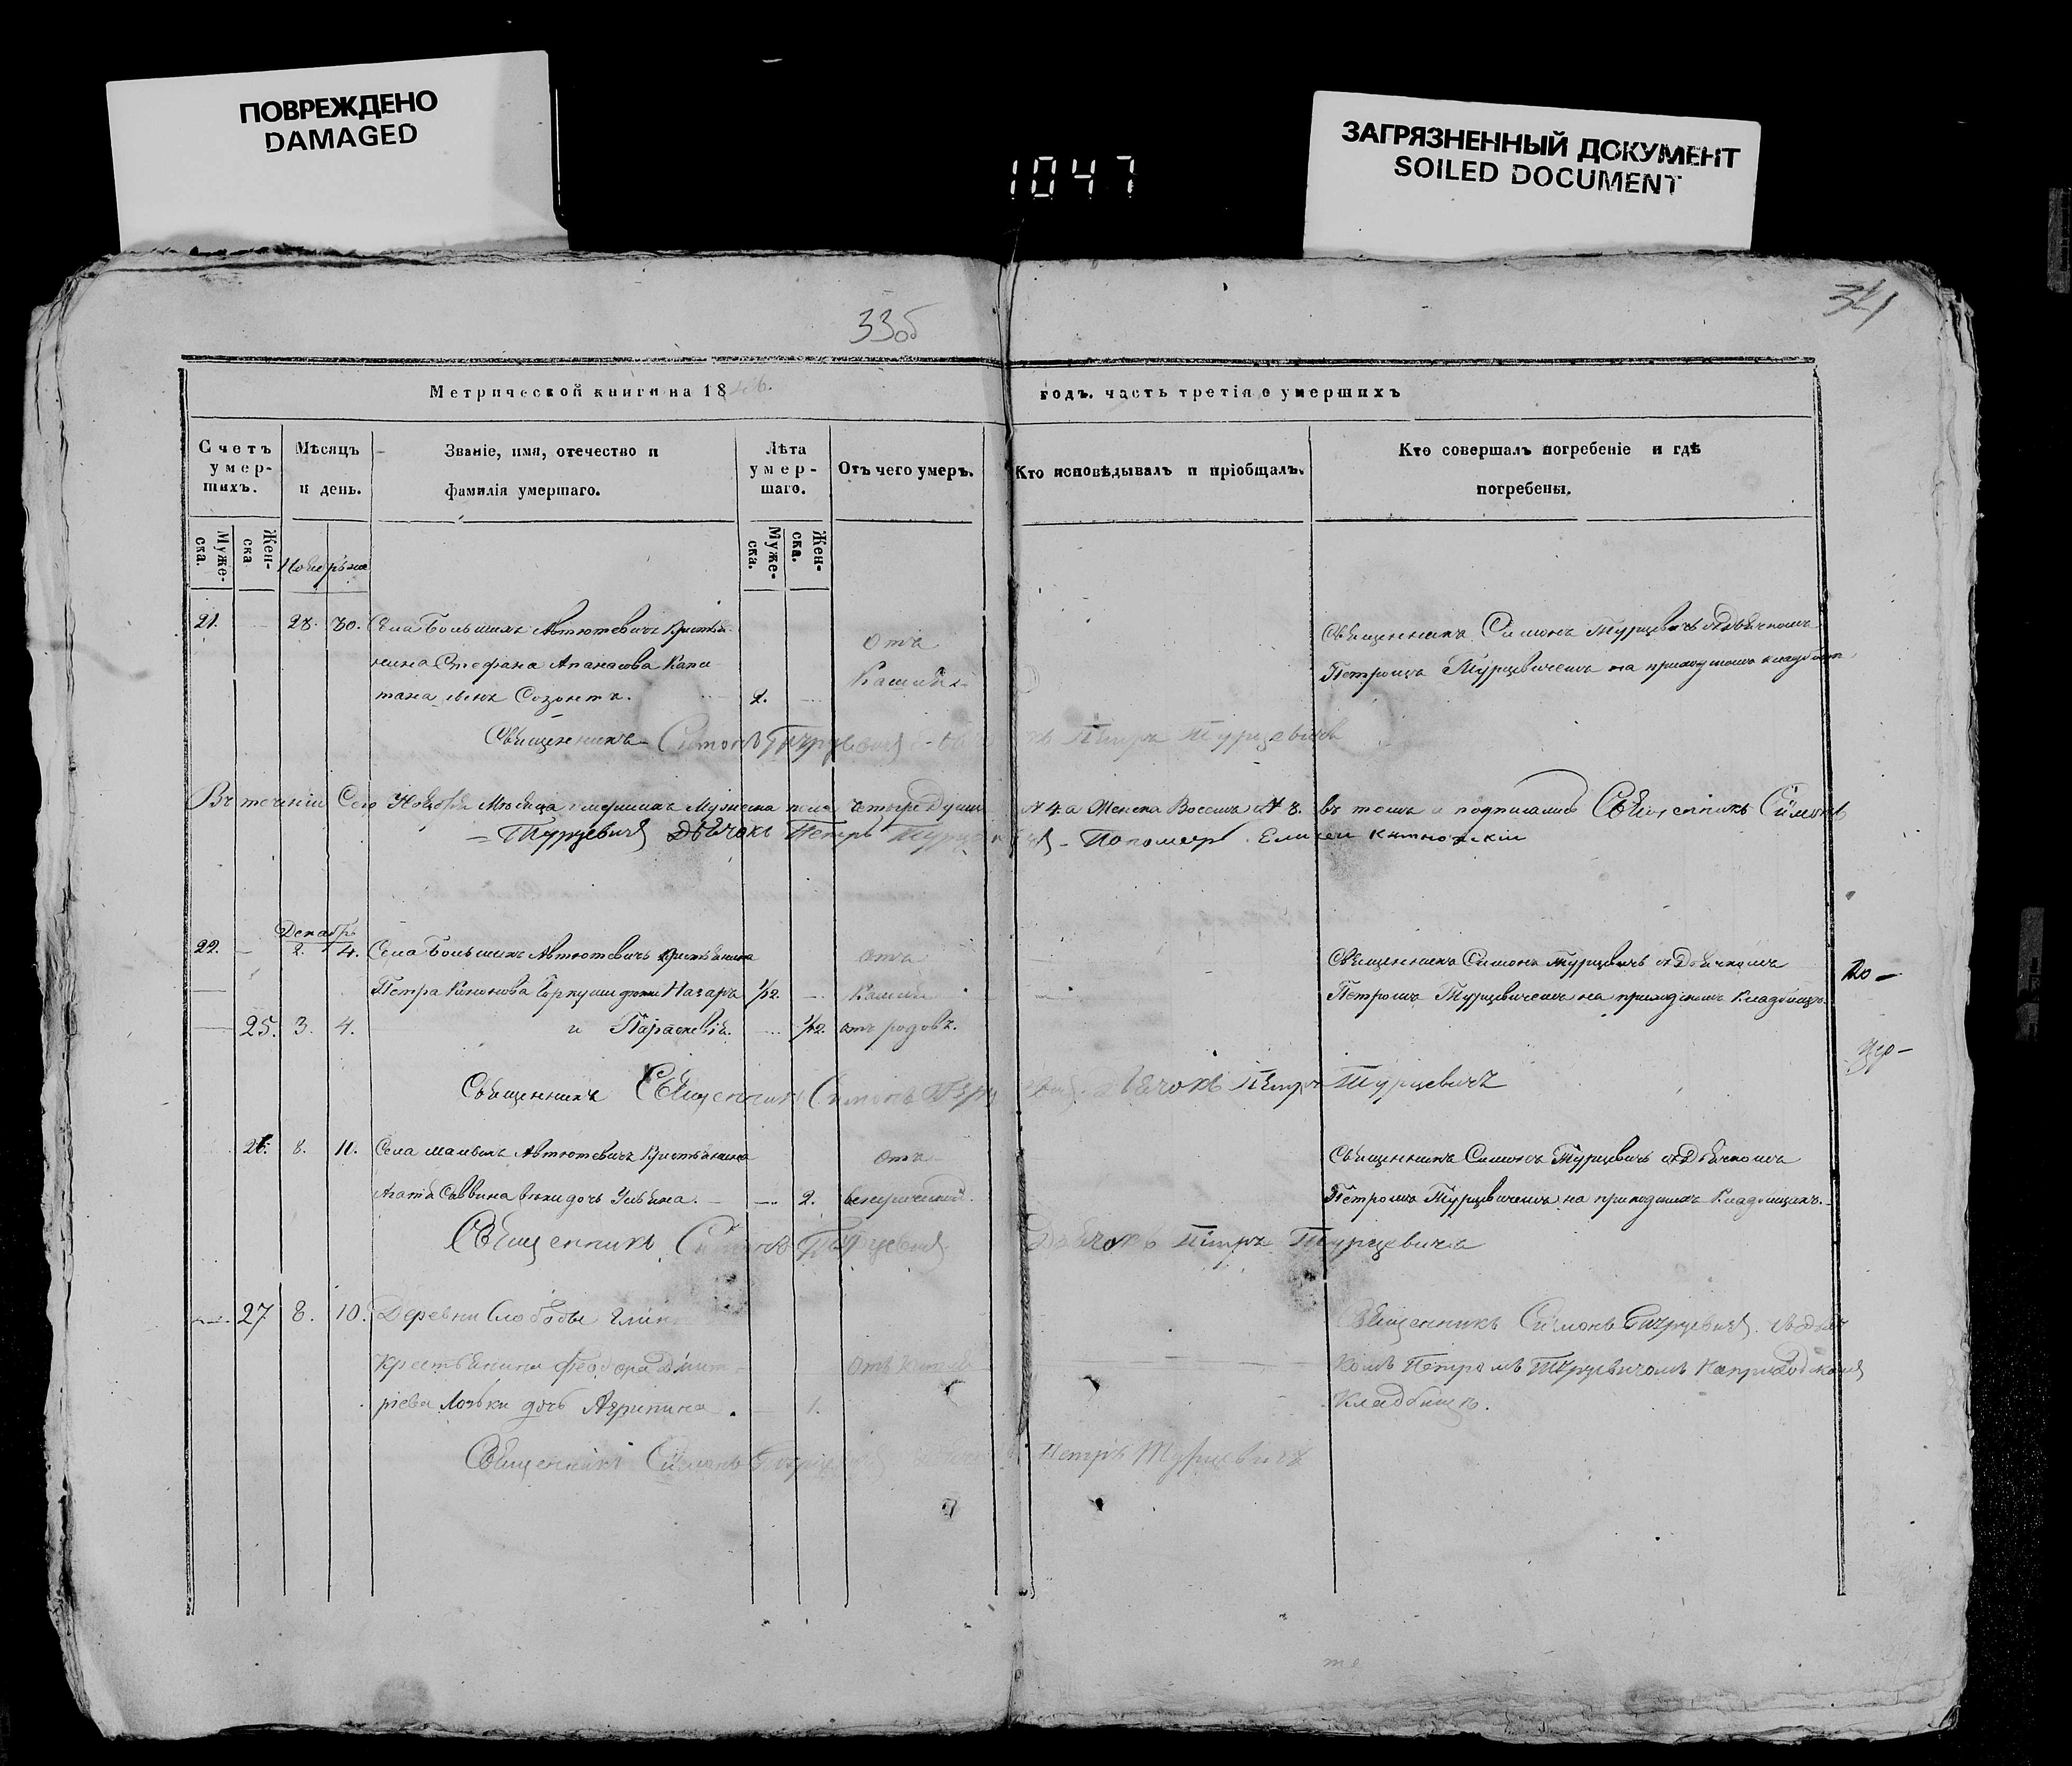 ПОВРЕЖДЕНО
DAMAGED
1047
ЗАГРЯЗНЕННЫЙ ДОКУМЕНТ
SOILED DOCUMENT
33об
34
Метрической книги на 1846.
годъ. часть третія о умершихъ
Счетъ умер-шихъ.
Мѣсяцъ и день.
Званіе, имя, отечество и фамилія умершаго.
Лѣта умер-шаго.
Отъ чего умеръ.
Кто исповѣдывалъ и пріобщалъ.
Кто совершалъ погребеніе и гдѣ погребены.
Муже-ска.
Жен-ска
Муже-ска.
Жен-ска.
Ноября
21. 28. 30. Села Большихъ Автютевичъ Крестья- Отъ Священникъ Симонъ Турцевичъ съ Дьячкомъ
нина Стефана Апанасова Капи- Кашля Петромъ Турцевичемъ на приходскомъ кладбищѣ
тана сынъ Созонтъ. 2.
Священникъ Симонъ Турцевичъ Петръ Турцевичъ
Въ теченіи Сего Ноября Мѣсяца умершихъ Мужеска пола четыре Души №4. а Женска Восемь №8. въ томъ и подписались Священникъ Симонъ
Турцевичъ Дьячокъ Петръ Турцевичъ Пономарь Елисей
Декабрь
22. 2. 4. Села Большихъ Автютевичъ Крестьянина отъ Священникъ Симонъ Турцевичъ съ Дьячкомъ
Петра Кононова Горкуши дѣти Назаръ 1/12. Кашля Петромъ Турцевичемъ на приходскомъ Кладбищѣ.
25. 3. 4. и Параскевія. 1/12. отъ родовъ.
Священникъ Священникъ Симонъ Дьячокъ Петръ Турцевичъ
26. 8. 11. Села малыхъ Автютевичъ Крестьянина Отъ Священникъ Симонъ Турцевичъ съ Дьячкомъ
дочь Ульяна. 2. венерической. Петромъ Турцевичемъ на приходскомъ Кладбищѣ.
Священникъ Симонъ Турцевичъ Дьячокъ Петръ Турцевичъ
27 8. 10. Деревни Слободы Священникъ Симонъ Турцевичъ съ Дьяч-
Крестьянина Феодора Димит- Отъ комъ Петромъ Турцевичомъ На приходскомъ
ріева дочь Агрипина. 1. Кладбищѣ.
Священникъ Симонъ Петръ Турцевичъ